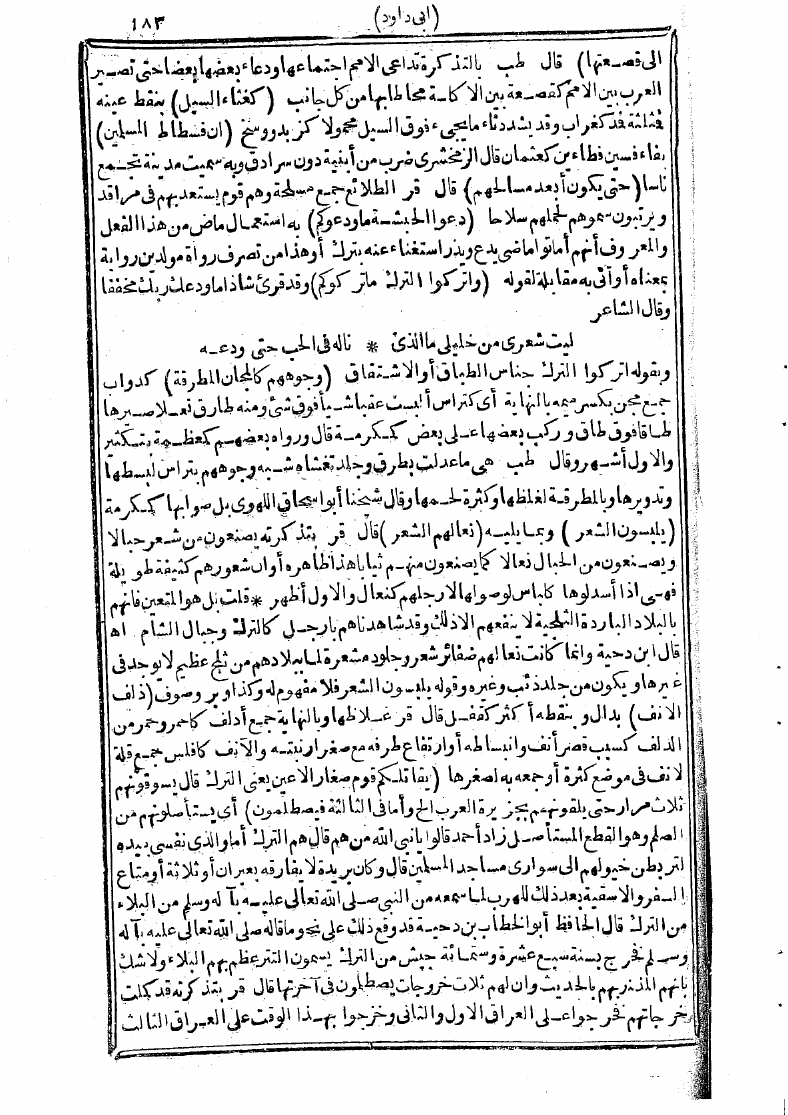 (ابى داود) ١٨٣
الى قصعتها) قال طب بالتذكرة تداعى الامم اجتماعها ودعاء بعضها بعضا حتى تصير
العرب بين الامم كقصعة بين الاكلة محاطا بها من كل جانب (كغثاء السيل) بنقط عينه
فثلثة فد كغراب وقد يشدد ثاء ما يجىء فوق السيل محمولا كزبد ووسخ (ان فسطاط المسلمين)
بفاء فسين فطاءين كعثمان قال الزمخشرى ضرب من أبنية دون سرادق وبه سميت مدينة تجمع
ناسا (حتى يكون أبعد مسالحهم) قال قر الطلائع جمع مسلحة وهم قوم يستعد بهم فى مراقد
ويرتبون سموهم لحملهم سلاحا (دعوا الحبشة ما ودعوكم) به استعمال ماض من هذا الفعل
والمعروف أنهم أماتوا ماضى يدع ويذر استغناء عنه بترك أو هذا من تصرف رواة مولدين رواية
بمعناه أو أتى به مقابلة لقوله (واتركوا الترك ما تركوكم) وقد قرئ شاذا ما ودعك ربك مخففا
وقال الشاعر
ليت شعرى من خليلى ما الذى * ناله فى الحب حتى ودعه
وبقوله اتركوا الترك جناس الطباق أو الاشتقاق (وجوههم كالمجان المطرقة) كدواب
جمع مجن بكسر ميمه بالنهاية أى كتراس ألبست عقبا شيأ فوق شئ ومنه طارق نعلا صيرها
طاقا فوق طاق وركب بعضها على بعض كمكرمة قال ورواه بعضهم كعظمة بتكثير
والاول أشهر وقال طب هى ما عدلت بطرق وجلد تغشاه شبه وجوههم بتراس لبسطها
وتدويرها وبالمطرقة لغلظها وكثرة لحمها وقال شيخنا أبو اسحاق اللهوى بل صوابها كمكرمة
(يلبسون الشعر) وبما يليه (نعالهم الشعر) قال قر بتذكرته يصنعون من شعر حبالا
ويصنعون من الحبال نعالا كما يصنعون منهم ثيابا هذا ظاهره أو ان شعورهم كثيفة طويلة
فهى اذا أسدلوها كلباس لوصولها لارجلهم كنعال والاول أظهر * قلت بل هو المتعين فانهم
بالبلاد الباردة الثلجية لا ينفعهم الا ذلك وقد شاهدناهم بارجل كالترك وجبال الشام اه
قال ابن دحية وانما كانت نعالهم ضفائر شعر وجلود مشعرة لما ببلادهم من ثلج عظيم لا يوجد فى
غيرها ويكون من جلد ذئب وغيره وقوله يلبسون الشعر فلا مفهوم له وكذا وبر وصوف (ذلف
الانف) بدال وبنقطه أكثر كقفل قال قر غلاظها وبالنهاية جمع أدلف كاحمر وحمر من
الدلف كسبب قصر أنف وانبساطه أو ارتفاع طرفه مع صغر ارنبته والآنف كافلس جمع قلة
لانف فى موضع كثرة أو جمعه به لصغرها (يقاتلكم قوم صغار الاعين يعنى الترك قال يسوقونهم
ثلاث مرار حتى يلقونهم بجزيرة العرب الخ وأما فى الثالثة فيصطلمون) أى يستأصلونهم من
الصلم وهو القطع المستأصل زاد أحمد قالوا يا نبى الله من هم قال هم الترك أما والذى نفسى بيده
لتربطن خيولهم الى سوارى مساجد المسلمين قال وكان بريدة لا يفارقه بعيران أو ثلاثة أو متاع
السفر والاسقية بعد ذلك للهرب لما سمعه من النبى صلى الله تعالى عليه بآله وسلم من البلاء
من الترك قال الحافظ أبو الخطاب بن دحية قد وقع ذلك على نحو ما قاله صلى الله تعالى عليه بآله
وسلم فخرج بسنة سبع عشرة وستمائة جيش من الترك يسمون التتر عظم بهم البلاء ولا شك
بانهم المنذر بهم بالحديث وان لهم ثلاث خروجات يصطلمون فى آخرتها قال قر بتذكرته قد كملت
خرجاتهم فخرجوا على العراق الاول والثانى وخرجوا بهذا الوقت على العراق الثالث